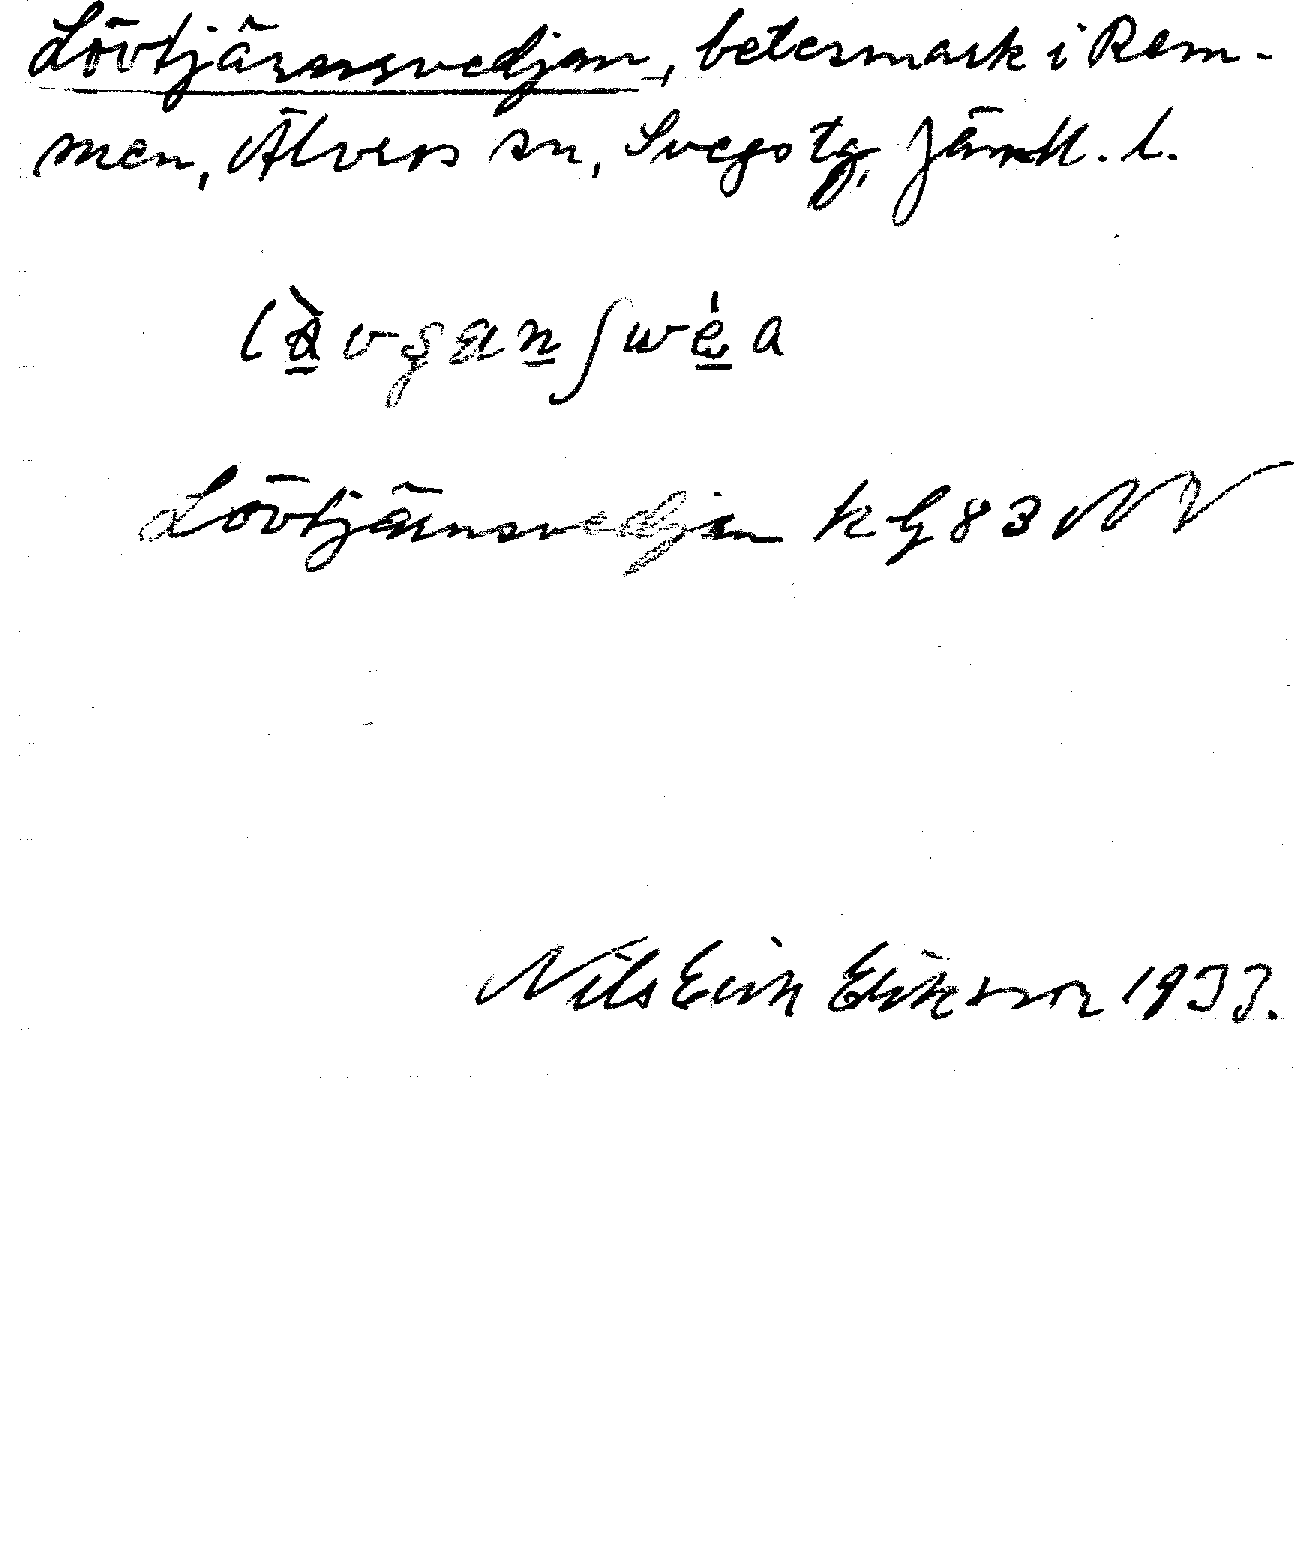 Lövtjärnsvedjan, betesmark i Rem-
men, Älvros sn, Svegs tg, Jämtl. l.
Lövtjärnsvedjan kg 83 NV
Nils Erik Eriksson 1933.